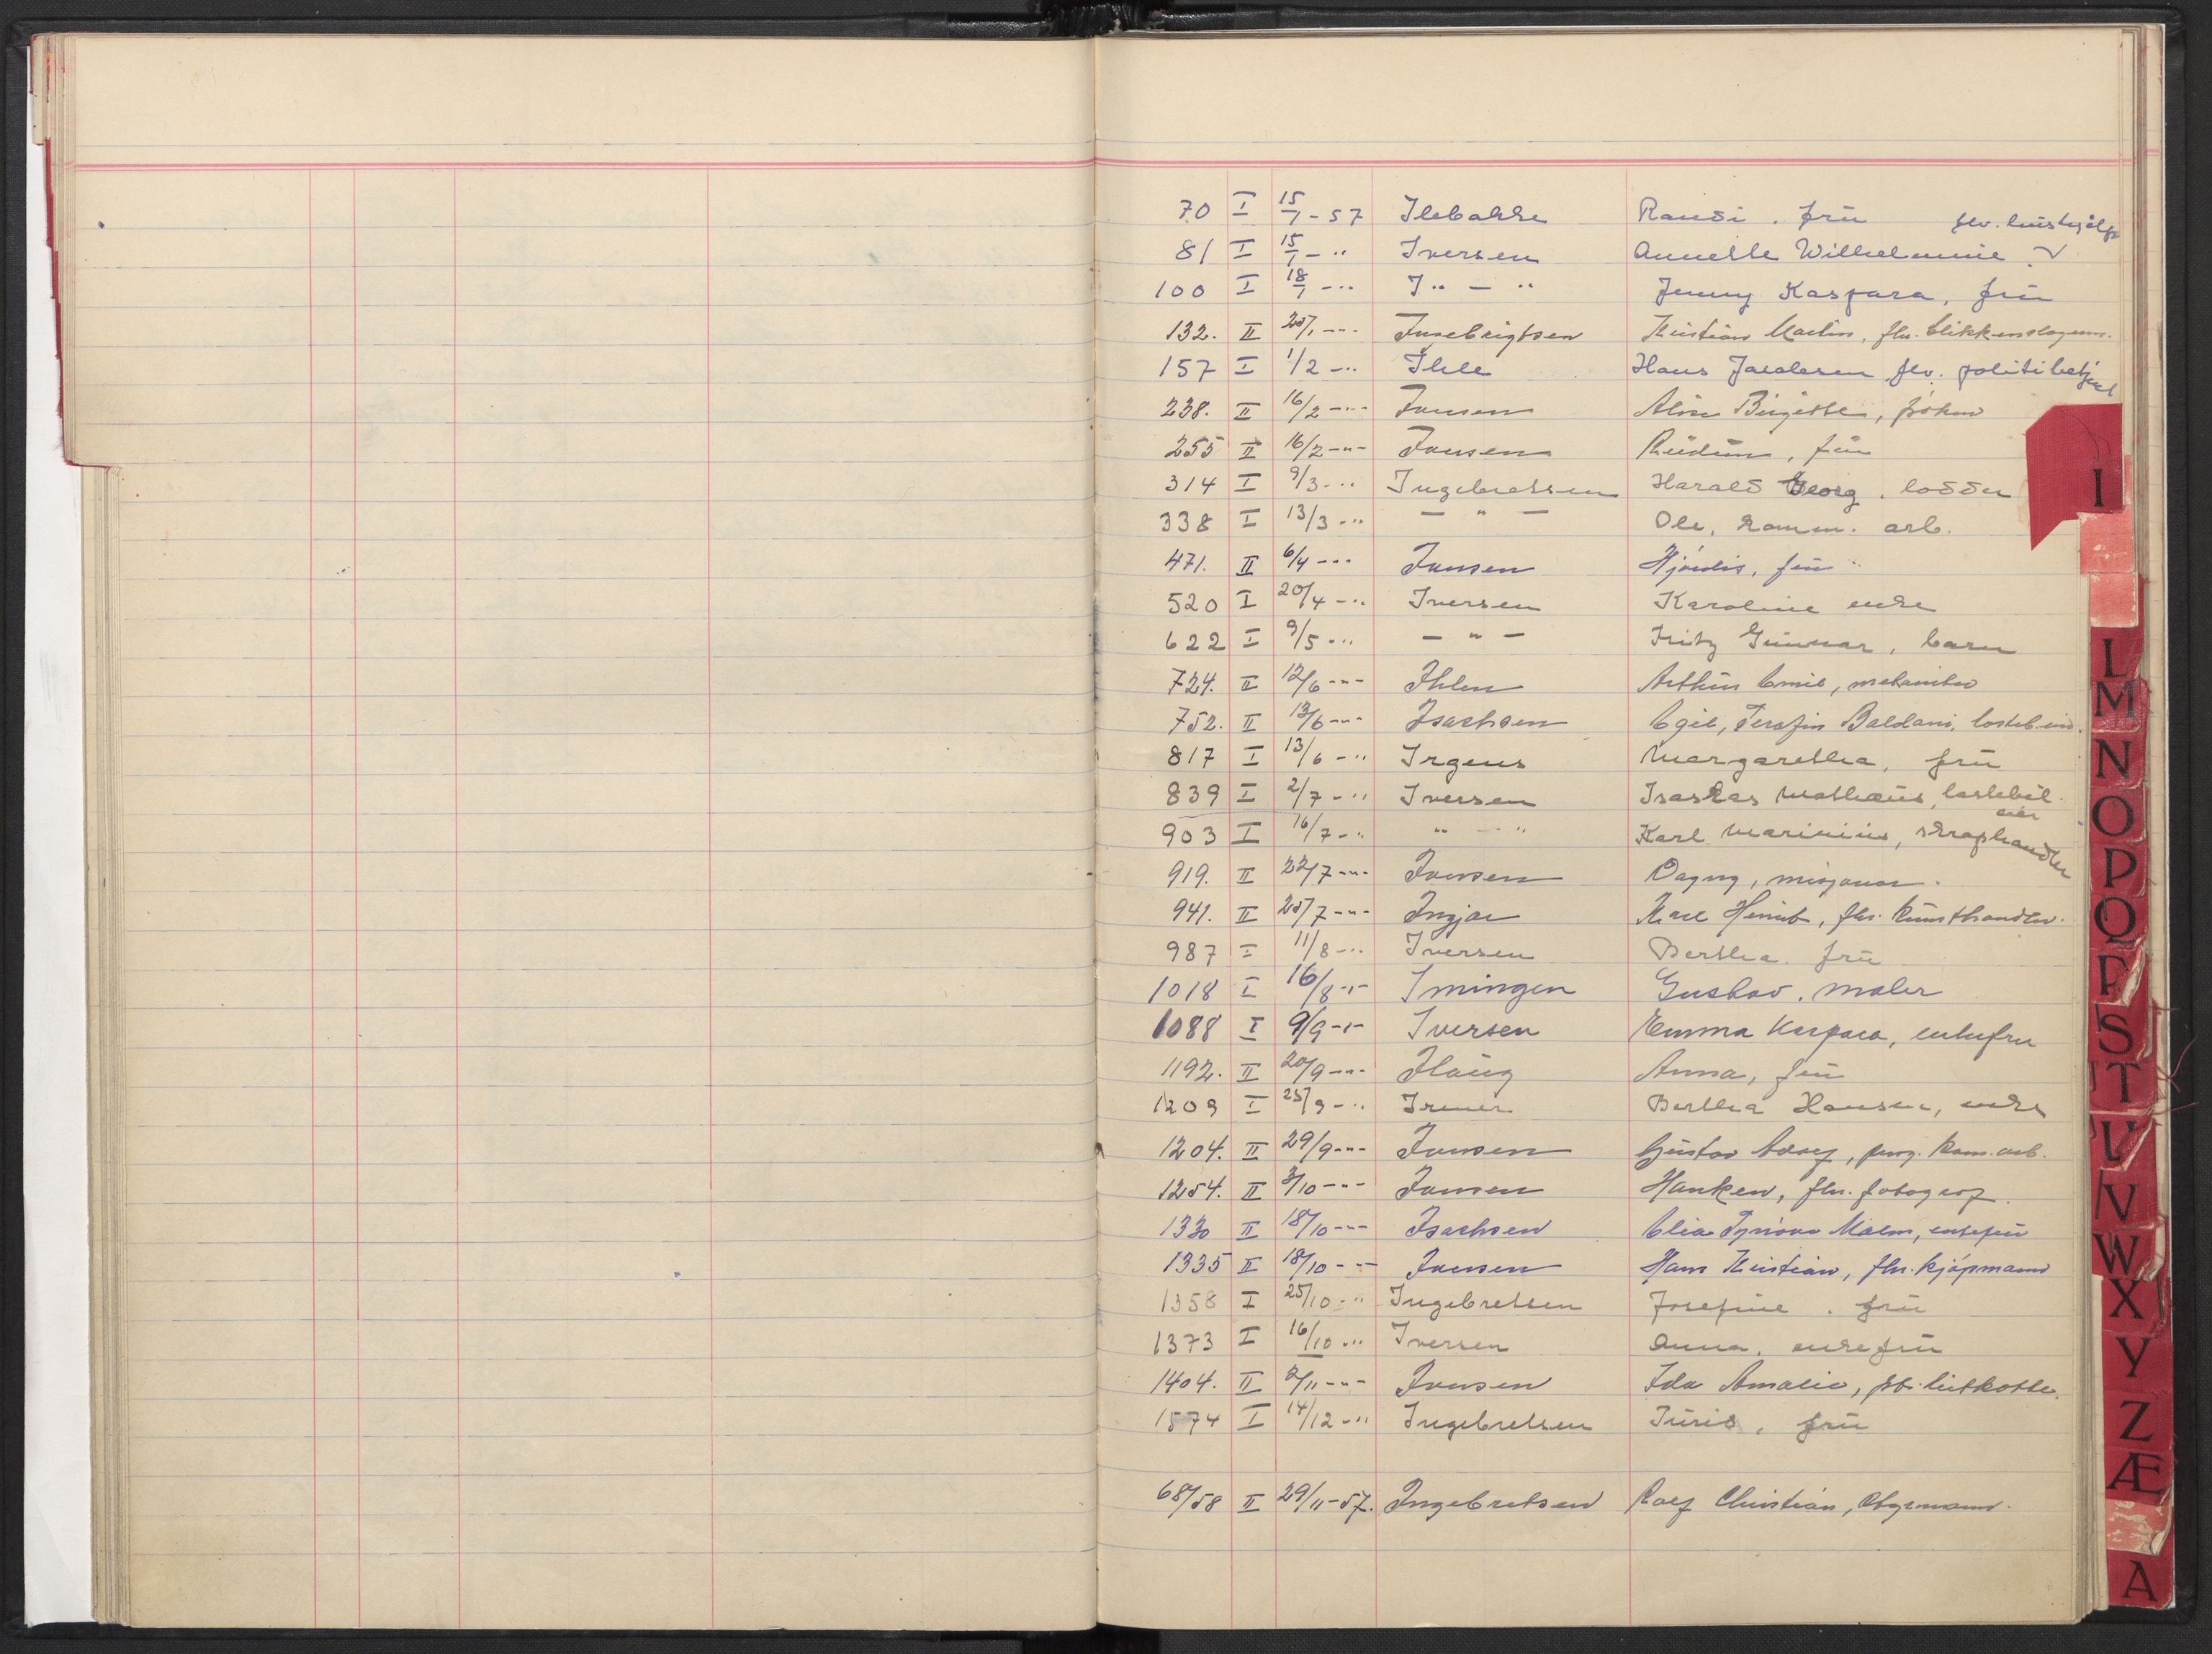 70 I 15/1 - 57 Ilebakke Randi. frü flv. hüshjelp
81 I 15/1 - " Iversen Annette Wilhelmine
100 I 18/1 - " I " - " Jenny Kaspara, frü
132. II - " - Ingebrigtsen Kristian Martin, fhv. blikkenslagerm.
157 I 1/2 - " Ihle Hans Jacobsen flv. politibetjent
238. II 16/2 - " - Iversen Birgitte, frøken
255 II 16/2 - " - Iversen frü
314 I 9/3 - " Ingebretsen Harald Georg, lodder
338 I 13/3 - " - " - Ole, komm. arb.
471. II 6/4 - " - Iversen Hjørdis, frü
520 I 20/4 - " Iversen Karoline enke
622 I 9/5 - " - " - Fritz Günnar, barn
724. II 12/6 - " - Ihlen Arthür Emil, mekaniker
752. II 13/6 - " - Isachsen Egil, Serafin
817 I 13/6 - " Irgens Margaretha, frü
839 I 2/7 - " Iversen Isaskas Mathæüs, lastebil.
eier
903 I 16/7 - " " - " Karl Mariniüs, skraphandler
919. II 22/7 - " - Iversen Dagny, misjonær.
941. II 25/7 - " - Ingjer Karl Henrik, fhv. künsthandler.
987 I 11/8 - " Iversen Bertha. frü
1018 I 16/8 - " - Imingen Gustav. maler
1088 I 9/9 - " - Iversen Emma Kaspara, enkefru
1192. II 20/9 - " - Ilaüg Anna, frü
1209 I 25/9 - " Bertha Hansen, enke
1204. II 29/9 - " - Iversen Güstav Adolf, pens. kom. arb.
1254. II 3/10 - " - Iversen Haakon, fhv. fotograf.
1330 II 18/10 - " - Isachsen Elia Malm, enkefrü
1335 II 18/10 - " - Iversen Hans Kristian, fhv. kjøpmann
1358 I 25/10 - " Ingebretsen Josefine. frü
1373 I 16/10 - " Iversen Anna. enkefrü
1404. II 2/11 - " - Iversen Ida Amalie,
1574 I 14/12 - " Ingebretsen Türid, frü
68/58 II 29/11 - 57. Ingebretsen Rolf Christian,
I
L
M
N
O
P
Q
R
S
T
U
V
W
X
Y
Z
Æ
A